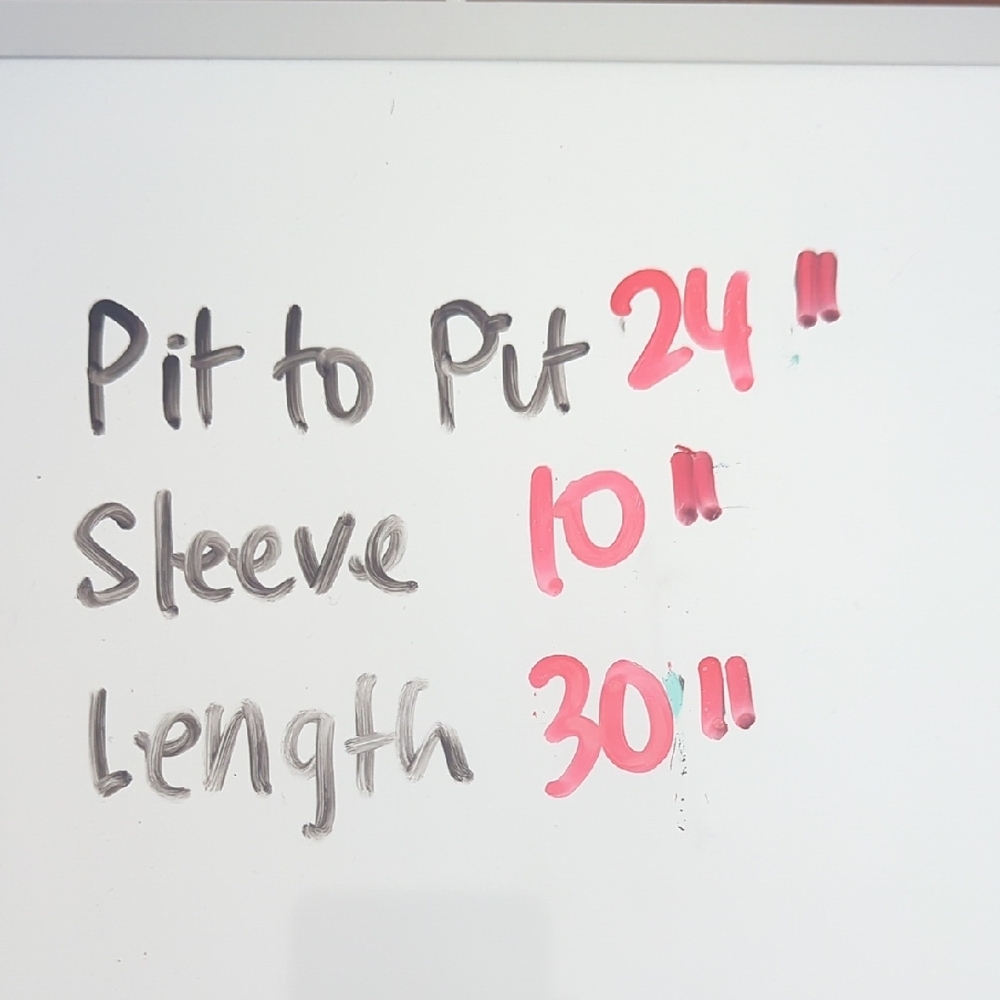 Pit to Pit 24"
Sleeve 10"
Length 30"